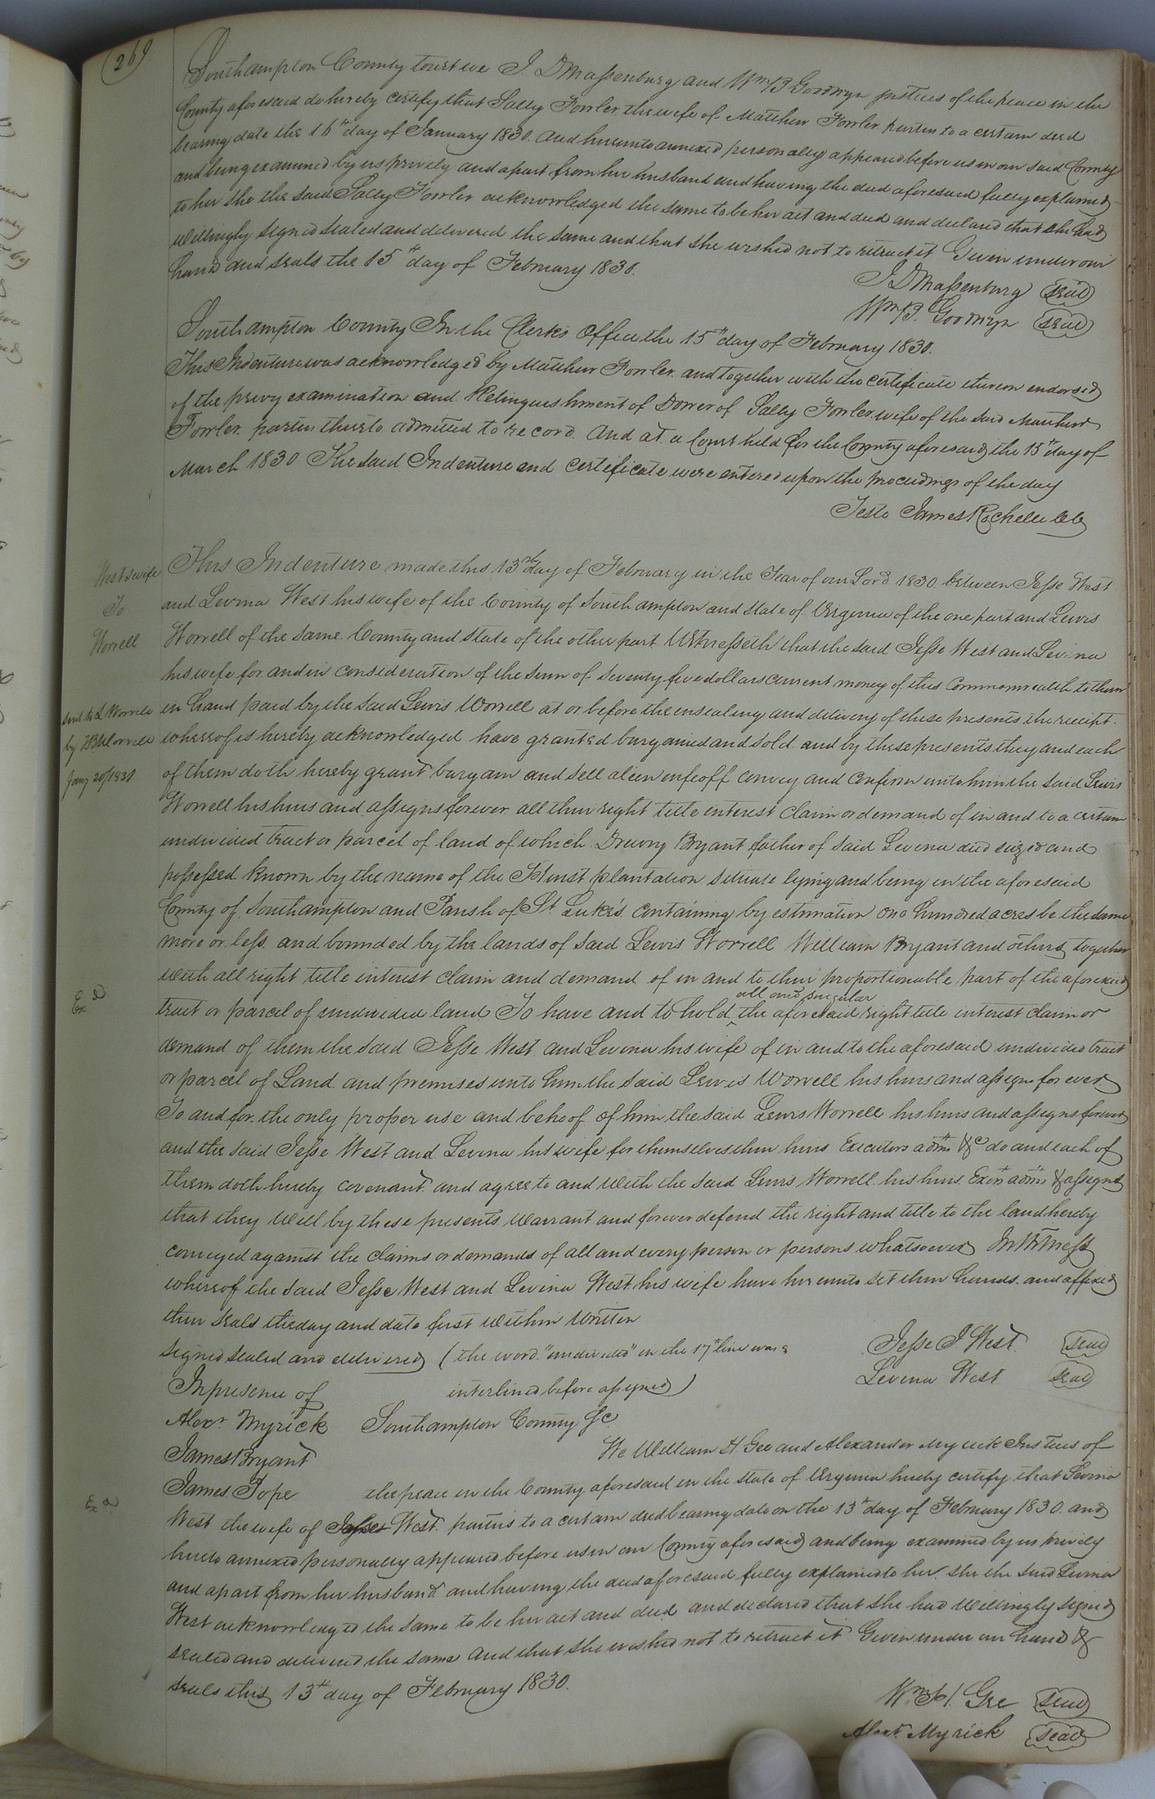 269
Southampton County towit we J. D Massenburg and Wm B Goodwyn justices of the peace in the
County aforesaid do hereby certify that Sally Fowler the wife of Matthew Fowler parties to a certain deed
bearing date the 16th day of January 1830. and hereunto annexed personally appeared before us in our said County
and being examined by us privily and apart from her husband and having the deed aforesaid fully explained
to her she the said Sally Fowler acknowledged the same to be her act and deed and declared that she had
willingly signed sealed and delivered the same and that she wished not to retract it Given under our
hand and seals the 15th day of February 1830.
J. D Massenburg seal
Wm B. Goodwyn seal
Southampton County In the Clerks Office the 15th day of February 1830.
This Indenture was acknowledged by Matthew Fowler and together with the certificate thereon endorsed
of the privy examination and Relinquishment of Dower of Sally Fowler wife of the said Matthew
Fowler parties thereto admitted to record. And at a Court held for the County aforesaid the 15th day of
March 1830 The said Indenture and certificate were entered upon the proceedings of the day
Teste James Rochelle Cl
West & wife
To
Worrell
This Indenture made this 13th day of February in the Year of our Lord 1830 between Jesse West
and Levina West his wife of the County of Southampton and State of Virginia of the one part and Lewis
Worrell of the same County and state of the other part Witnesseth that the said Jesse West and Levina
his wife for and in consideration of the sum of Seventy five dollars current money of this Commonwealth to them
in hand paid by the said Lewis Worrell at or before the ensealing and delivery of these presents the receipt
whereof is hereby acknowledged have granted bargained and sold and by these presents they and each
of them doth hereby grant bargain and sell alien enfeoff convey and confirm unto him the said Lewis
Worrell his heirs and assigns forever all their right title interest claim or demand of in and to a certain
undivided tract or parcel of land of which Drewry Bryant father of said Levina died seized and
possessed known by the name of the plantation situate lying and being in the aforesaid
County of Southampton and Parish of St Luke's containing by estimation one hundred acres be the same
more or less and bounded by the lands of said Lewis Worrell William Bryant and others together
with all right title interest claim and demand of in and to their proportionable part of the aforesaid
Jany 20/1831
all and singular
tract or parcel of undivided land To have and to hold the aforesaid right title interest claim or
demand of them the said Jesse West and Levina his wife of in and to the aforesaid undivided tract
or parcel of Land and premises unto him the said Lewis Worrell his heirs and assigns forever
To and for the only proper use and behoof of him the said Lewis Worrell his heirs and assigns forever
and the said Jesse West and Levina his wife for themselves their heirs Executors adms &c do and each of
them doth hereby covenant and agree to and with the said Lewis Worrell his heirs Exors adms & assigns
that they will by these presents warrant and forever defend the right and title to the land hereby
conveyed against the claims or demands of all and every person or persons whatsoever In Witness
whereof the said Jesse West and Levina West his wife have hereunto set their hands and affixed
their seals the day and date first within written
signed sealed and delivered (the word "undivided" in the 17th line was
Jesse J West seal
In presence of interlined before assigned)
Levina West seal
Alexr Myrick Southampton County Sc
James Bryant We William H. Gee and Alexander Myrick Justices of
James Pope the peace in the County aforesaid in the state of Virginia hereby certify that Levina
West the wife of Jesse West parties to a certain deed bearing date on the 13th day of February 1830 and
hereto annexed personally appeared before us in our County aforesaid and being examined by us privily
and apart from her husband and having the deed aforesaid fully explained to her she the said Levina
West acknowledged the same to be her act and deed and declared that she had willingly signed
sealed and delivered the same and that she wished not to retract it Given under our hand &
seals this 13th day of February 1830.
Wm H. Gee seal
Alexr Myrick seal